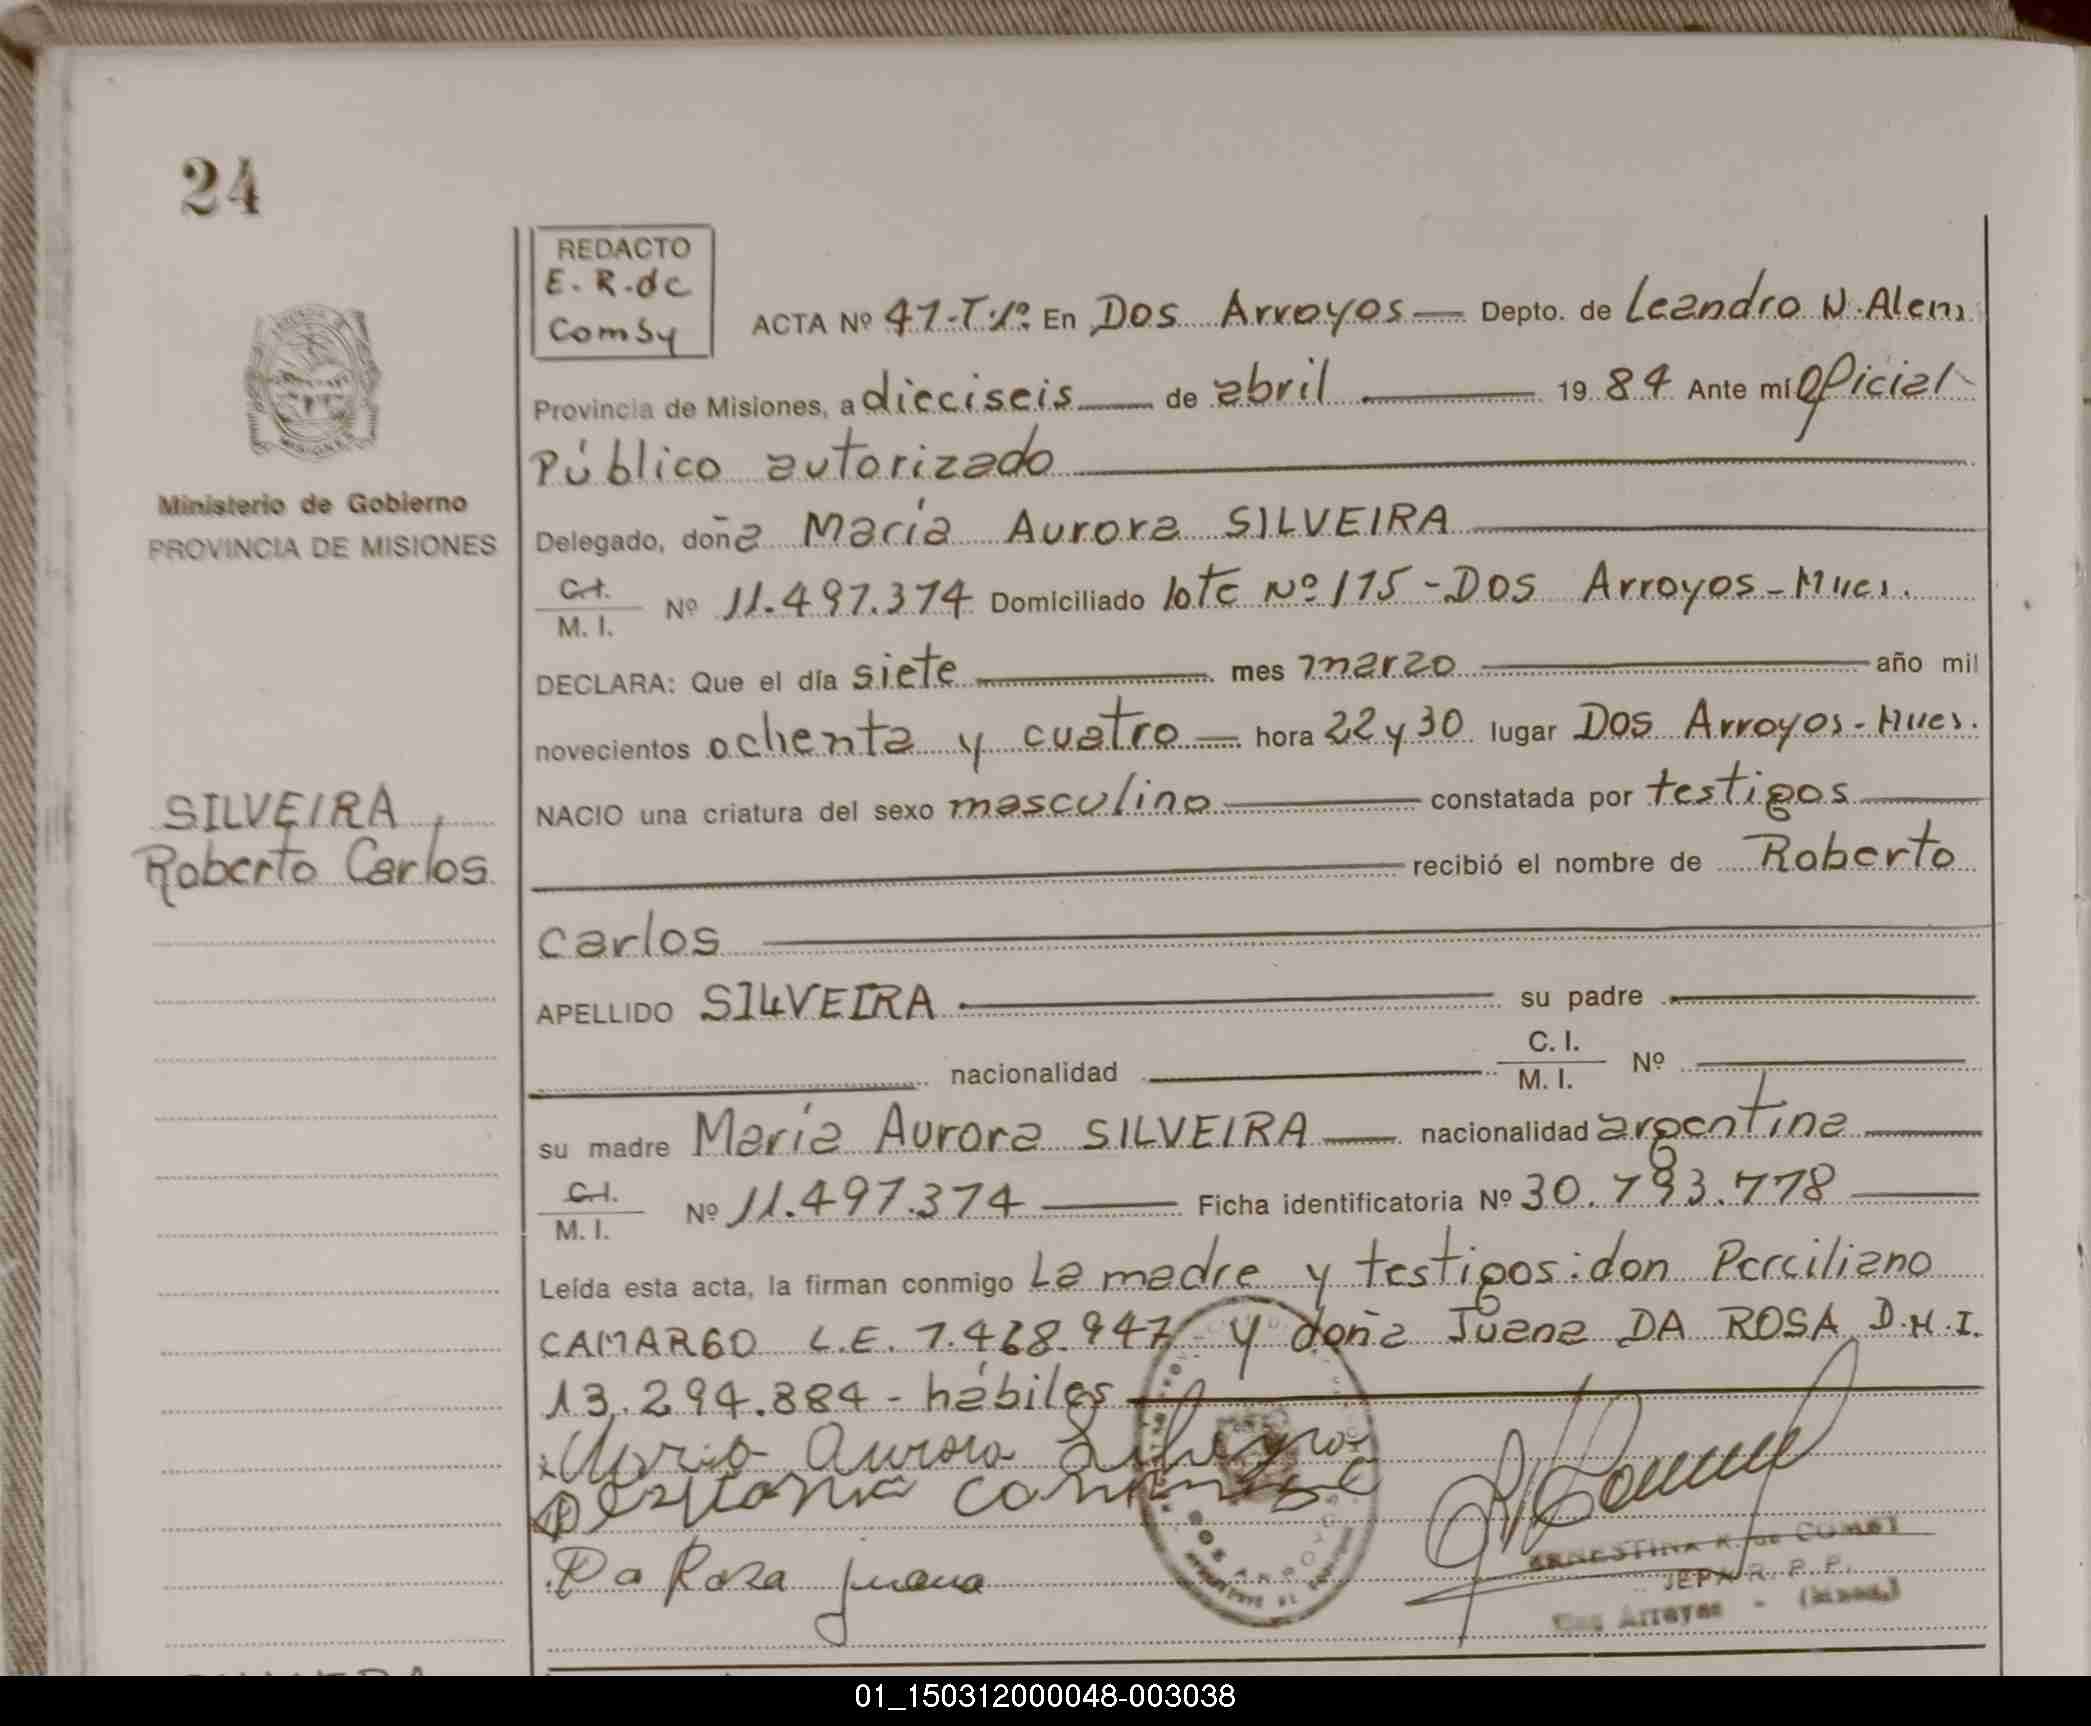 24
REDACTO
E. R. de
Comsy
ACTA Nº 47-T.1º. En Dos Arroyos Depto. de Leandro N. Alem
Provincia de Misiones, a dieciseis de abril 1984 Ante mí Oficial
Público autorizado
Ministerio de Gobierno
PROVINCIA DE MISIONES
Delegado, doña María Aurora SILVEIRA
C.I.
M. I. Nº 11.497.374 Domiciliado lote Nº 175 - Dos Arroyos - Mnes.
DECLARA: Que el día siete mes marzo año mil
novecientos ochenta y cuatro hora 22 y 30 lugar Dos Arroyos - Mnes.
SILVEIRA
Roberto Carlos
NACIO una criatura del sexo masculino constatada por testigos
recibió el nombre de Roberto
Carlos
APELLIDO SILVEIRA su padre
nacionalidad C. I.
M. I. Nº
su madre María Aurora SILVEIRA nacionalidad argentina
C.I.
M. I. Nº 11.497.374 Ficha identificatoria Nº 30.793.778
Leída esta acta, la firman conmigo La madre y testigos: don Perciliano
CAMARGO L.E. 7.468.947 y doña Juana DA ROSA D.N.I.
13.294.884 - hábiles
Maria Aurora
Da Rosa juana
ERNESTINA R. de
JEFA R. P. P.
Dos Arroyos - (Mnes.)
01_150312000048-003038